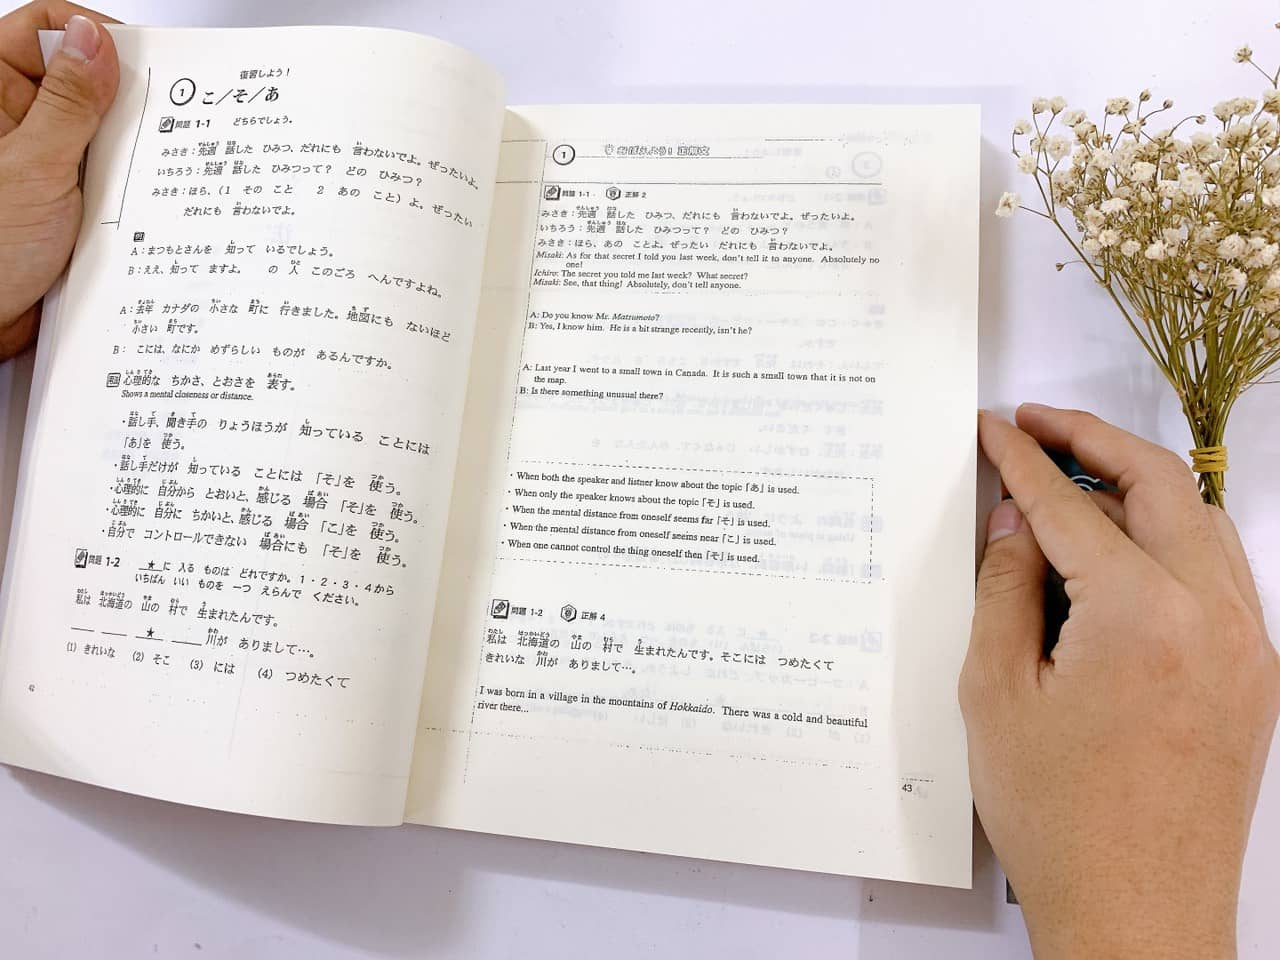 復習しよう！
1 こ／そ／あ
問題 1-1 どちらでしょう。
みさき：先週 話した ひみつ、だれにも 言わないでよ。ぜったいよ。
いちろう：先週 話した ひみつって？ どの ひみつ？
みさき：ほら、(1 その こと 2 あの こと) よ。ぜったい
だれにも 言わないでよ。
例
A：まつもとさんを 知って いるでしょう。
B：ええ、知って ますよ。 の 人 このごろ へんですよね。
A：去年 カナダの 小さな 町に 行きました。地図にも ないほど
小さい 町です。
B： こには、なにか めずらしい ものが あるんですか。
心理的な ちかさ、とおさを 表す。
Shows a mental closeness or distance.
・話し手、聞き手の りょうほうが 知っている ことには
「あ」を 使う。
・話し手だけが 知っている ことには 「そ」を 使う。
・心理的に 自分から とおいと、感じる 場合 「そ」を 使う。
・心理的に 自分に ちかいと、感じる 場合 「こ」を 使う。
・自分で コントロールできない 場合にも 「そ」を 使う。
問題 1-2 ★に 入る ものは どれですか。1・2・3・4から
いちばん いい ものを 一つ えらんで ください。
私は 北海道の 山の 村で 生まれたんです。
＿＿ ＿＿ ★ ＿＿ 川が ありまして…。
(1) きれいな (2) そこ (3) には (4) つめたくて
42
1 おぼえよう！ 正解文
問題 1-1 正解 2
みさき：先週 話した ひみつ、だれにも 言わないでよ。ぜったいよ。
いちろう：先週 話した ひみつって？ どの ひみつ？
みさき：ほら、あの ことよ。ぜったい だれにも 言わないでよ。
Misaki: As for that secret I told you last week, don't tell it to anyone. Absolutely no
one!
Ichiro: The secret you told me last week? What secret?
Misaki: See, that thing! Absolutely, don't tell anyone.
A: Do you know Mr. Matsumoto?
B: Yes, I know him. He is a bit strange recently, isn't he?
A: Last year I went to a small town in Canada. It is such a small town that it is not on
the map.
B: Is there something unusual there?
・When both the speaker and listner know about the topic「あ」is used.
・When only the speaker knows about the topic「そ」is used.
・When the mental distance from oneself seems far「そ」is used.
・When the mental distance from oneself seems near「こ」is used.
・When one cannot control the thing oneself then「そ」is used.
問題 1-2 正解 4
私は 北海道の 山の 村で 生まれたんです。そこには つめたくて
きれいな 川が ありまして…。
I was born in a village in the mountains of Hokkaido. There was a cold and beautiful
river there...
43